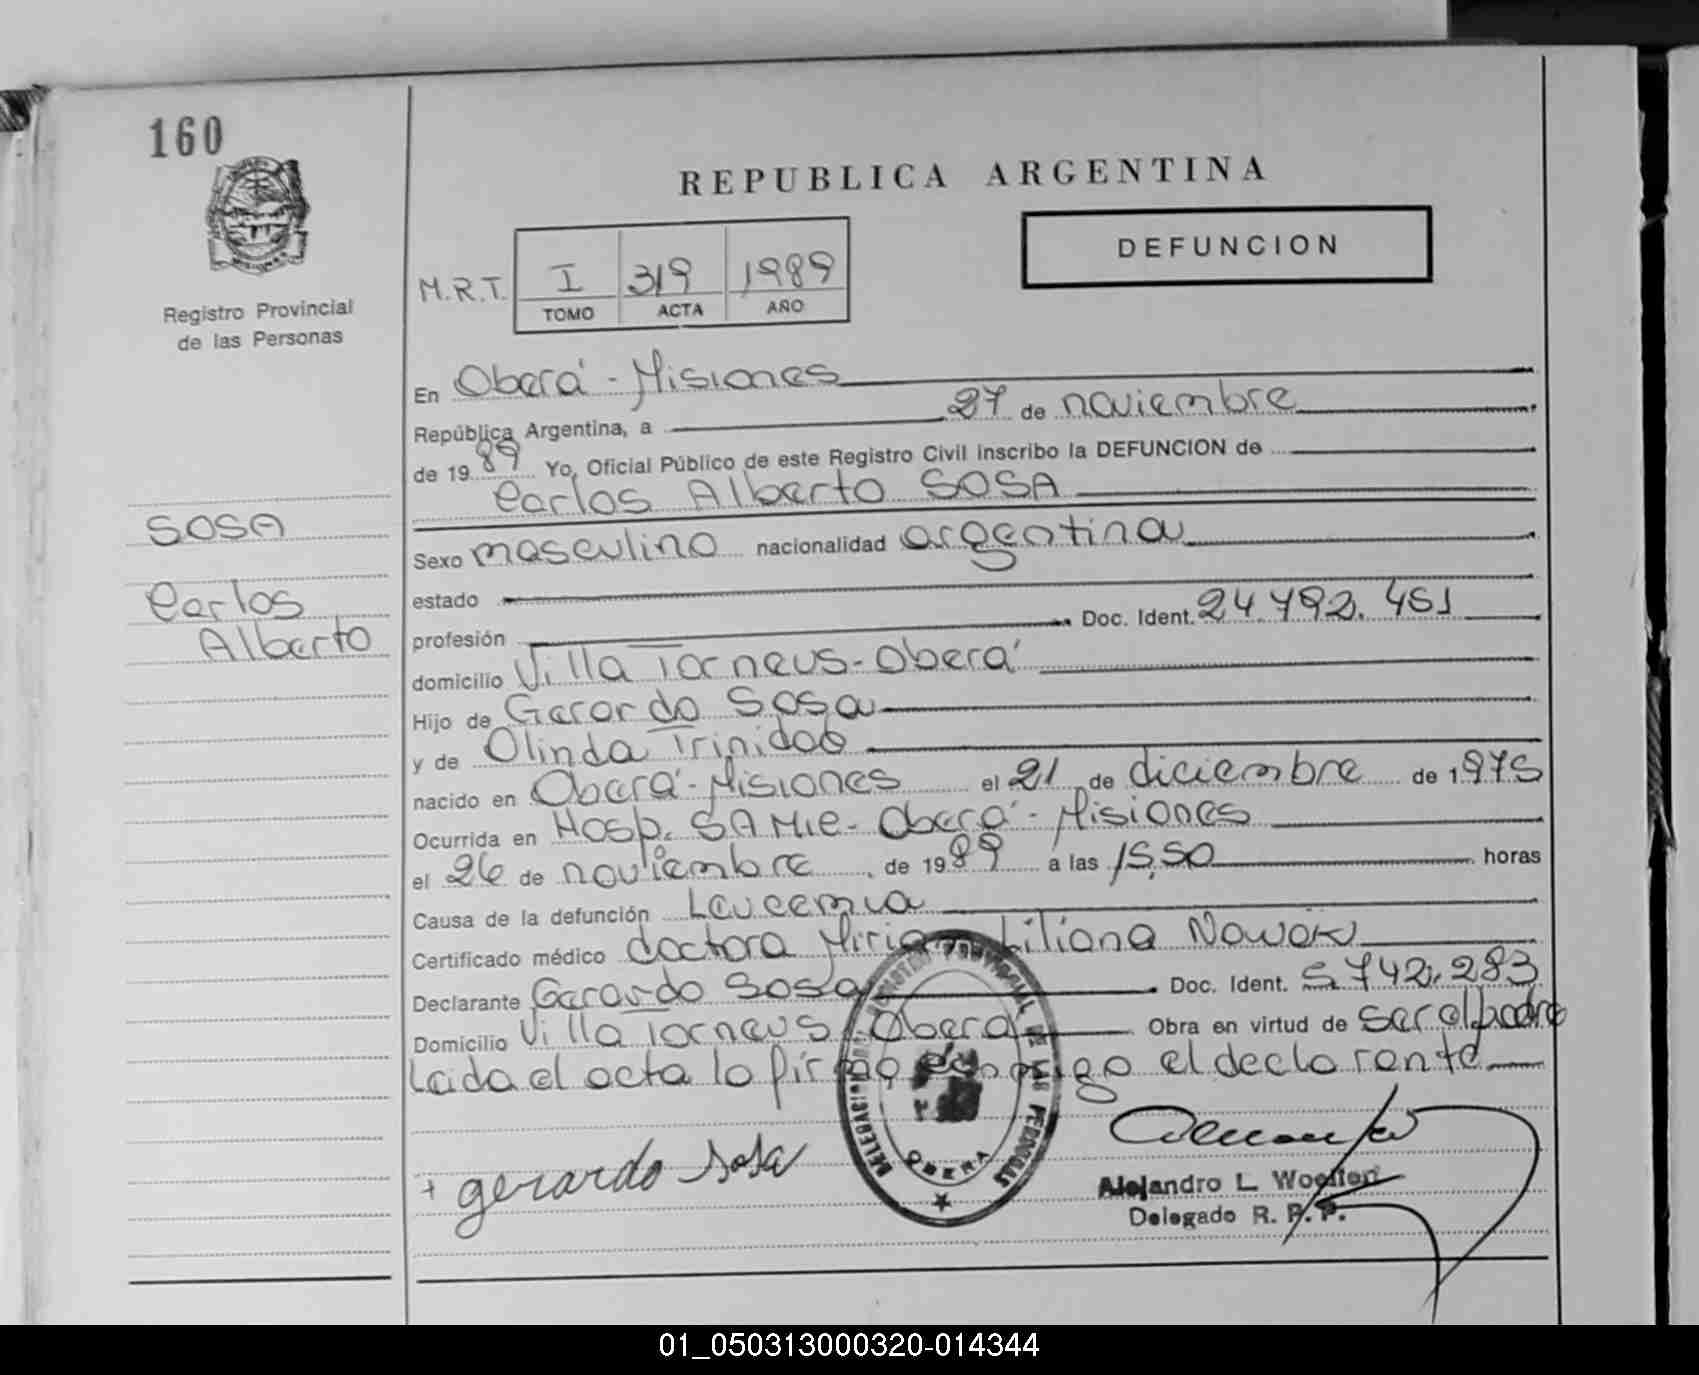 160
REPUBLICA ARGENTINA
DEFUNCION
M.R.T. I 319 1989
TOMO ACTA AÑO
Registro Provincial
de las Personas
SOSA
Carlos
Alberto
En Oberá - Misiones
República Argentina, a 27 de noviembre
de 19 89 Yo, Oficial Público de este Registro Civil inscribo la DEFUNCION de
Carlos Alberto SOSA
Sexo masculino nacionalidad argentina
estado
profesión Doc. Ident. 24.792.451
domicilio Villa Torneus - Oberá
Hijo de Gerardo Sosa
y de Olinda Trinidad
nacido en Oberá - Misiones el 21 de diciembre de 1975
Ocurrida en Hosp. SAMIC - Oberá - Misiones
el 26 de noviembre de 19 89 a las 15,50 horas
Causa de la defunción Leucemia
Certificado médico doctora Miriam Liliana Nowak
Declarante Gerardo Sosa Doc. Ident. 5742.283
Domicilio Villa Torneus Oberá Obra en virtud de ser el padre
Leida el acta la firma conmigo el declarante
+ gerardo sosa
OBERA
Alejandro L.
Delegado R. P. P.
01_050313000320-014344